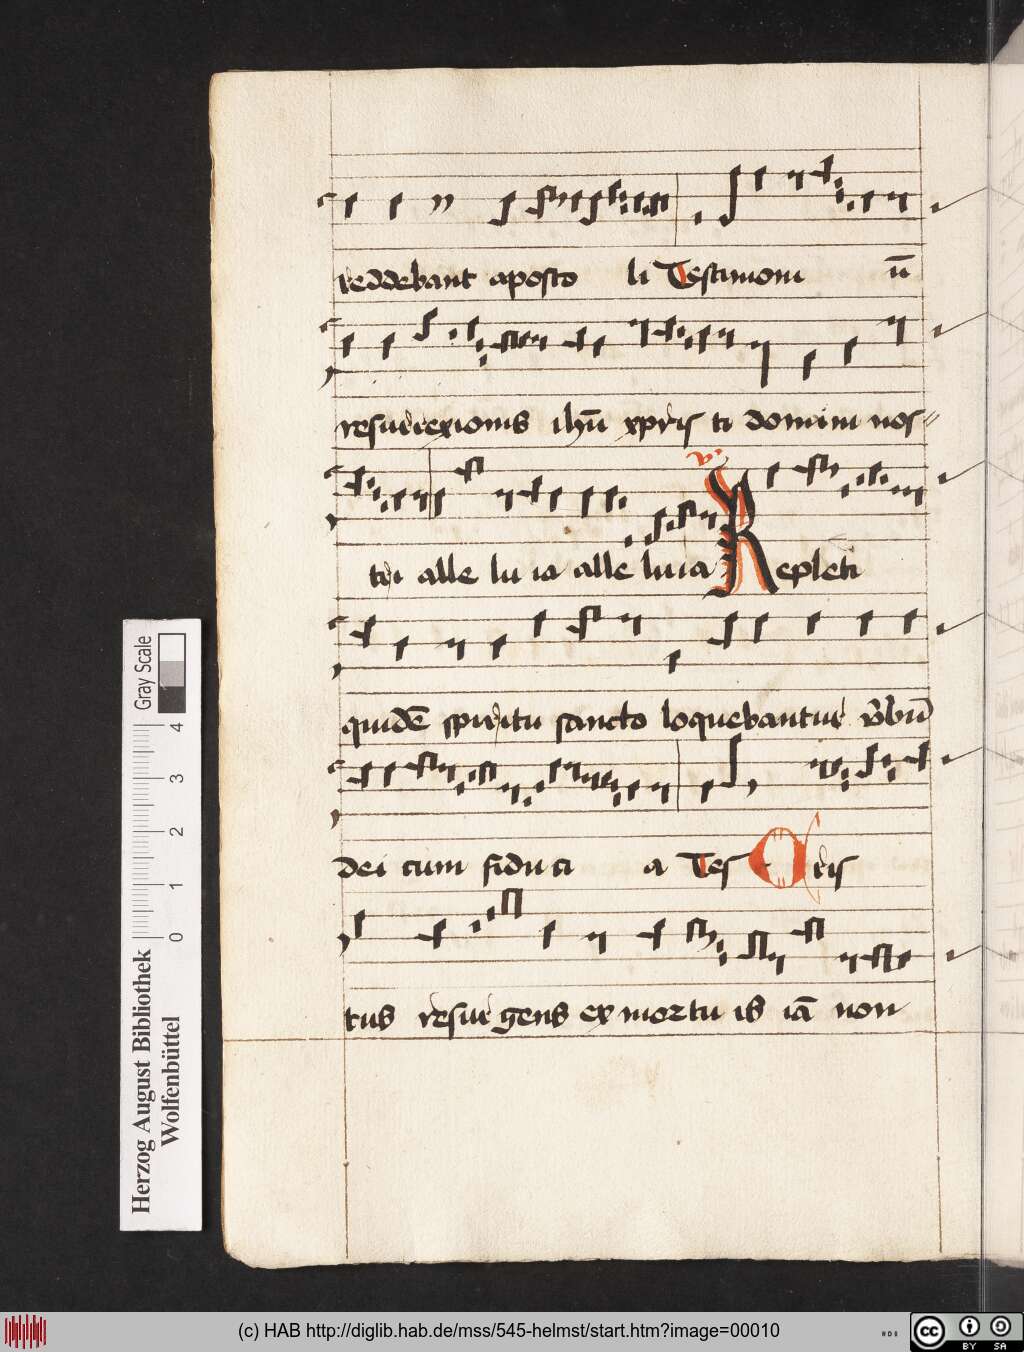 reddebant aposto li Testimoni ū
resurrexionis ihū xpris ti domini nos=
tri alle lu ia alle luia Repleti
quidē spiritu sancto loquebantur v̄bū
dei cum fiduci a Tes Cris
tus resur gens ex mortu is iā non
Gray Scale
0 1 2 3 4
Herzog August Bibliothek
Wolfenbüttel
(c) HAB http://diglib.hab.de/mss/545-helmst/start.htm?image=00010
cc BY SA